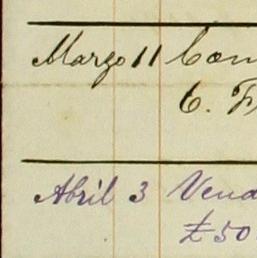 Marzo 11 Com
C. F
Abril 3 Vend
£ 50